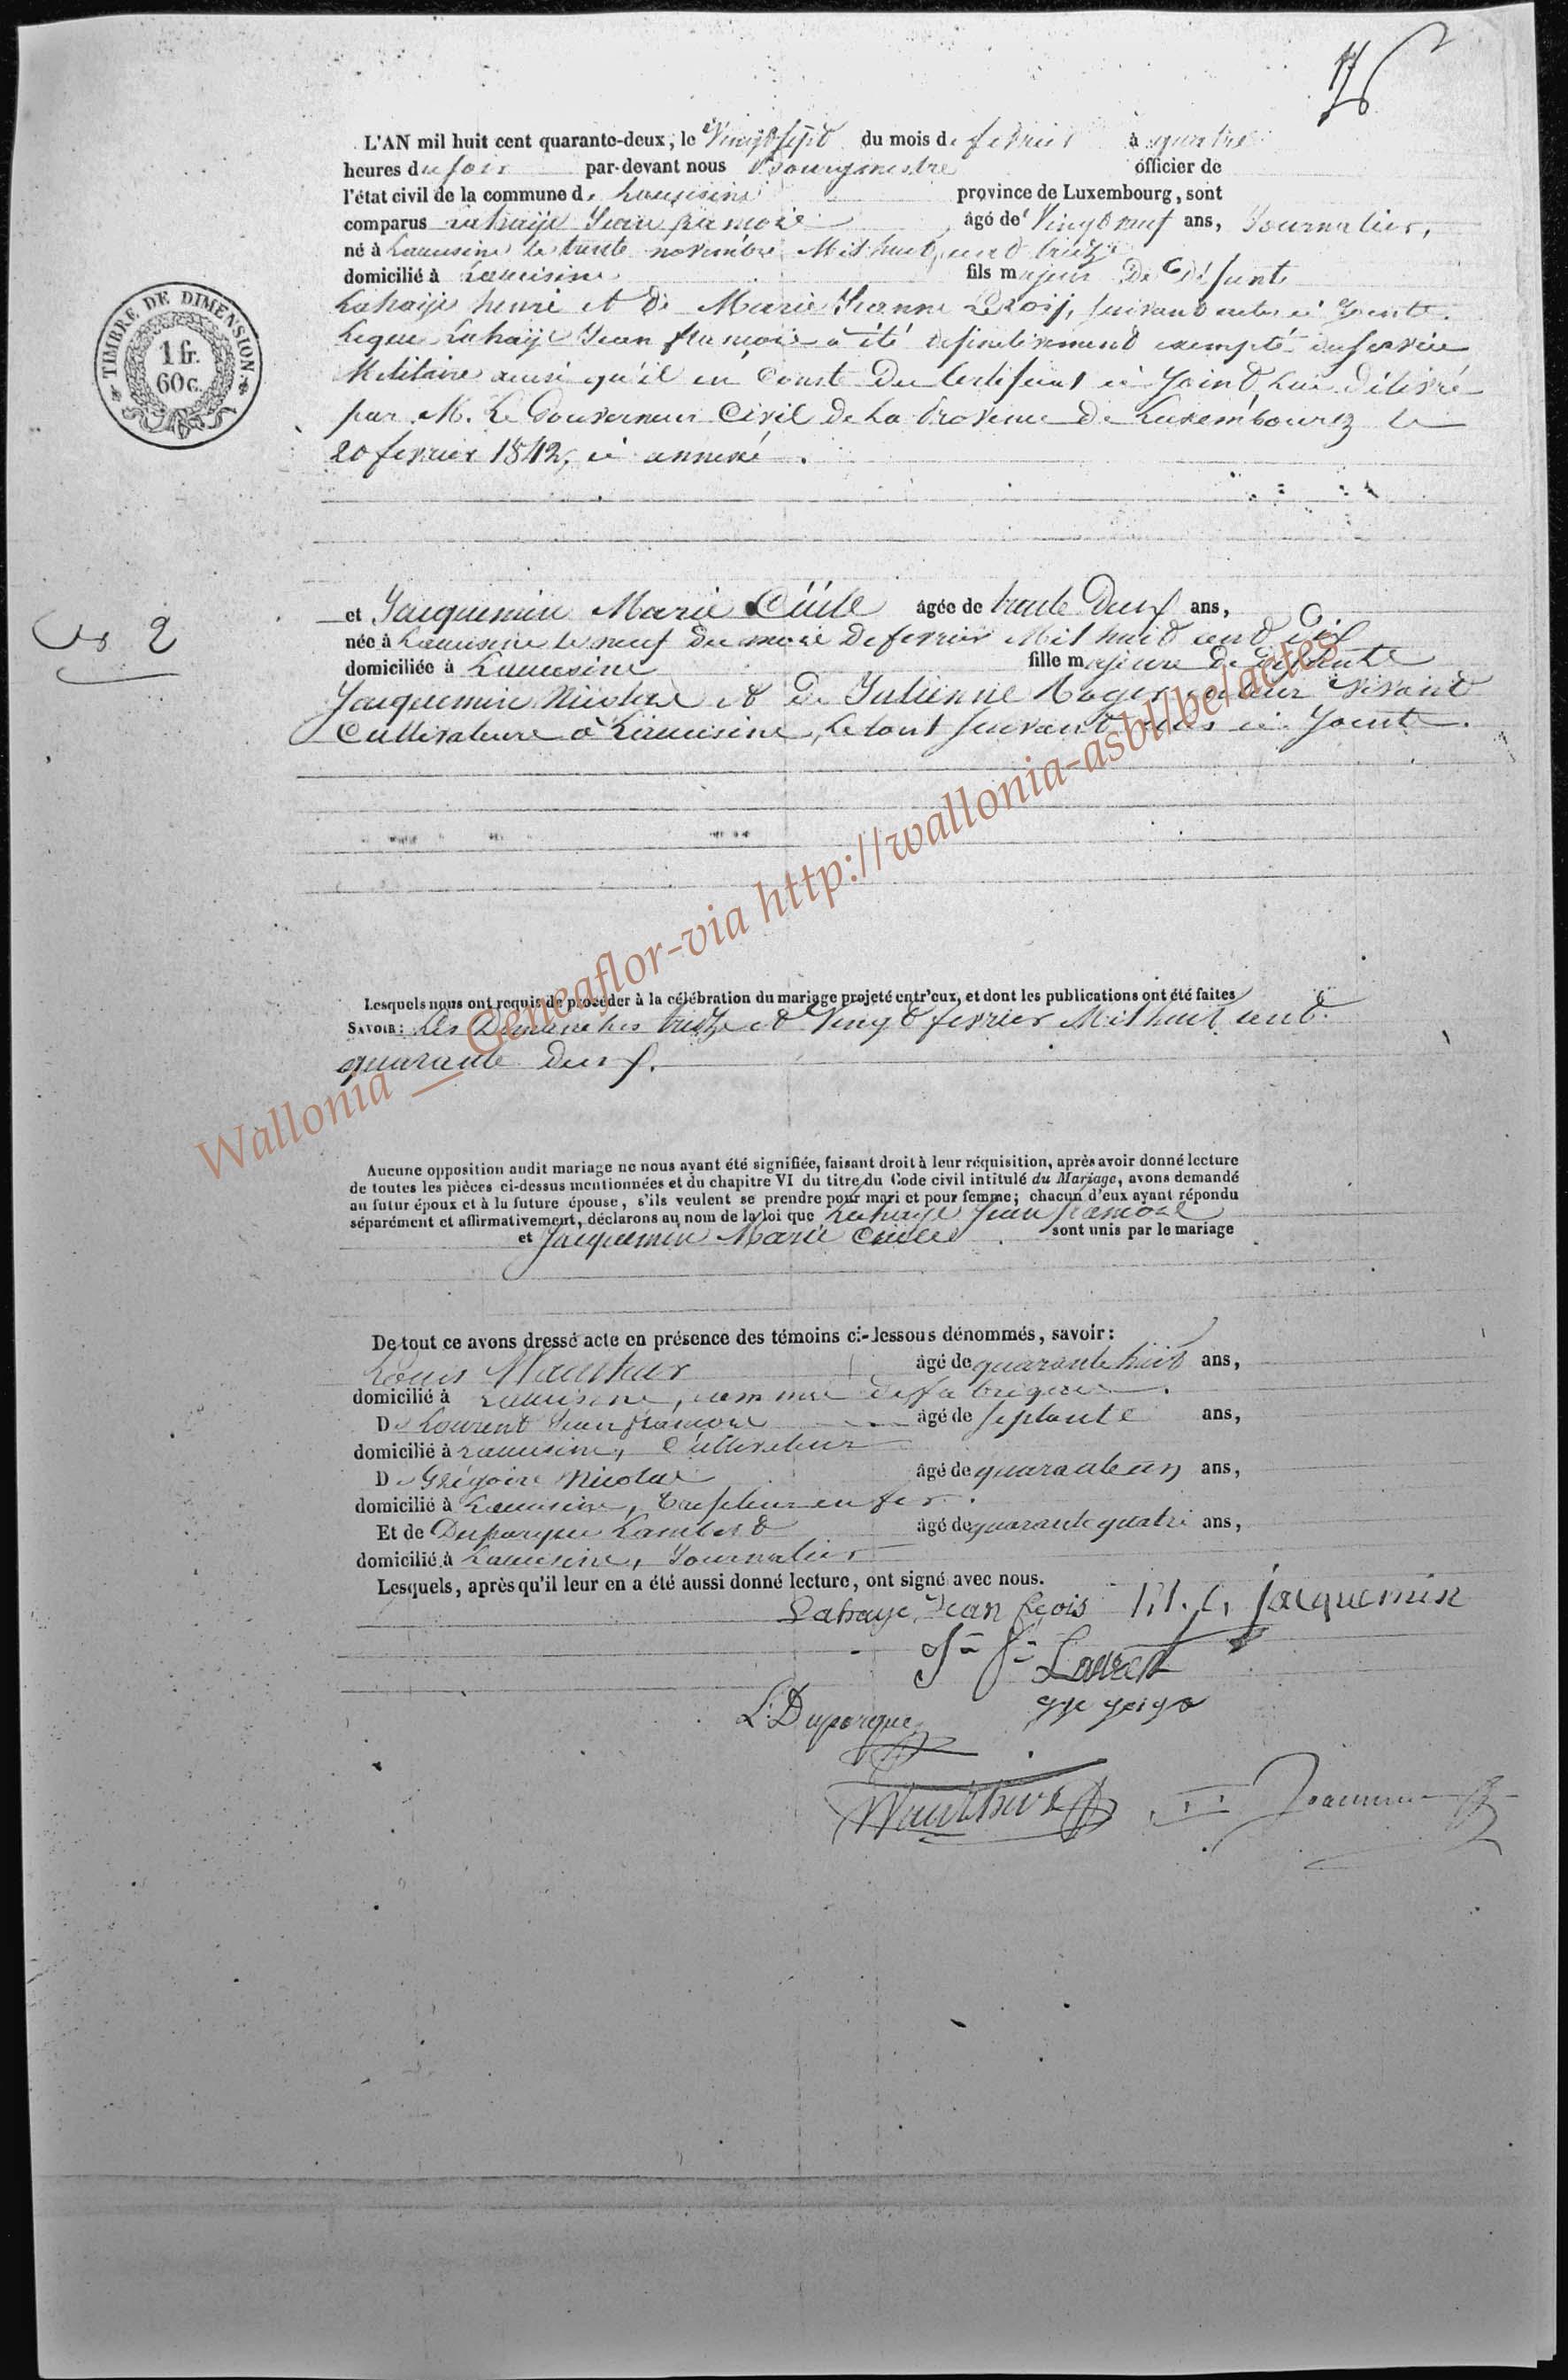 76
L'AN mil huit cent quarante-deux, le Vingt sept du mois de fevrier à quatre
heures du soir par-devant nous Bourgmestre officier de
l'état civil de la commune de Lacuisine province de Luxembourg, sont
comparus Lahaije Jean françois âgé de Vingt neuf ans, Journalier,
né à Lacuisine le trente novembre Mil huit cent
domicilié à Lacuisine fils majeur De Defunts
Lahaije henri et de Marie Jeanne Leroij, suivant actes ci Joints.
Lequel Lahaije Jean françois a été definitivement exempté du service
Militaire ainsi qu'il en Conste Du Certificat ci Joint Lui Délivré
par M. Le Gouverneur Civil de La Province De Luxembourg le
20 fevrier 1842, ci annexé.
TIMBRE DE DIMENSION.
1 fr.
60 c.
No 2
et Jacquemin Marie Cécile âgée de trente Deux ans,
née à Lacuisine le neuf du mois De fevrier Mil huit cent Dix
domiciliée à Lacuisine fille majeure De Defunts
Jacquemin Nicolas et De Julienne Roger en leur vivant
Cultivateurs à Lacuisine, Le tout suivant actes ci Joints.
Lesquels nous ont requis de procéder à la célébration du mariage projeté entr'eux, et dont les publications ont été faites
SAVOIR: Les Dimanches treize et Vingt fevrier Mil huit cent
quarante Deux.
Aucune opposition audit mariage ne nous ayant été signifiée, faisant droit à leur réquisition, après avoir donné lecture
de toutes les pièces ci-dessus mentionnées et du chapitre VI du titre du Code civil intitulé du Mariage, avons demandé
au futur époux et à la future épouse, s'ils veulent se prendre pour mari et pour femme; chacun d'eux ayant répondu
séparément et affirmativement, déclarons au nom de la loi que Lahaije Jean françois
et Jacquemin Marie Cécile sont unis par le mariage
De tout ce avons dressé acte en présence des témoins ci-dessous dénommés, savoir:
Louis âgé de quarante huit ans,
domicilié à Lacuisine, commis De fabrique.
De Laurent Jean françois âgé de septante ans,
domicilié à Lacuisine, Cultivateur
De Grégoire Nicolas âgé de quarante un ans,
domicilié à Lacuisine, en fer.
Et de Duparque Lambert âgé de quarante quatre ans,
domicilié à Lacuisine, Journalier
Lesquels, après qu'il leur en a été aussi donné lecture, ont signé avec nous.
Lahaye Jean fçois M. C. jacquemin
Jn fs Laurent
L. Duparque
Wallonia __ Geneaflor-via http://wallonia-asbl/be/actes